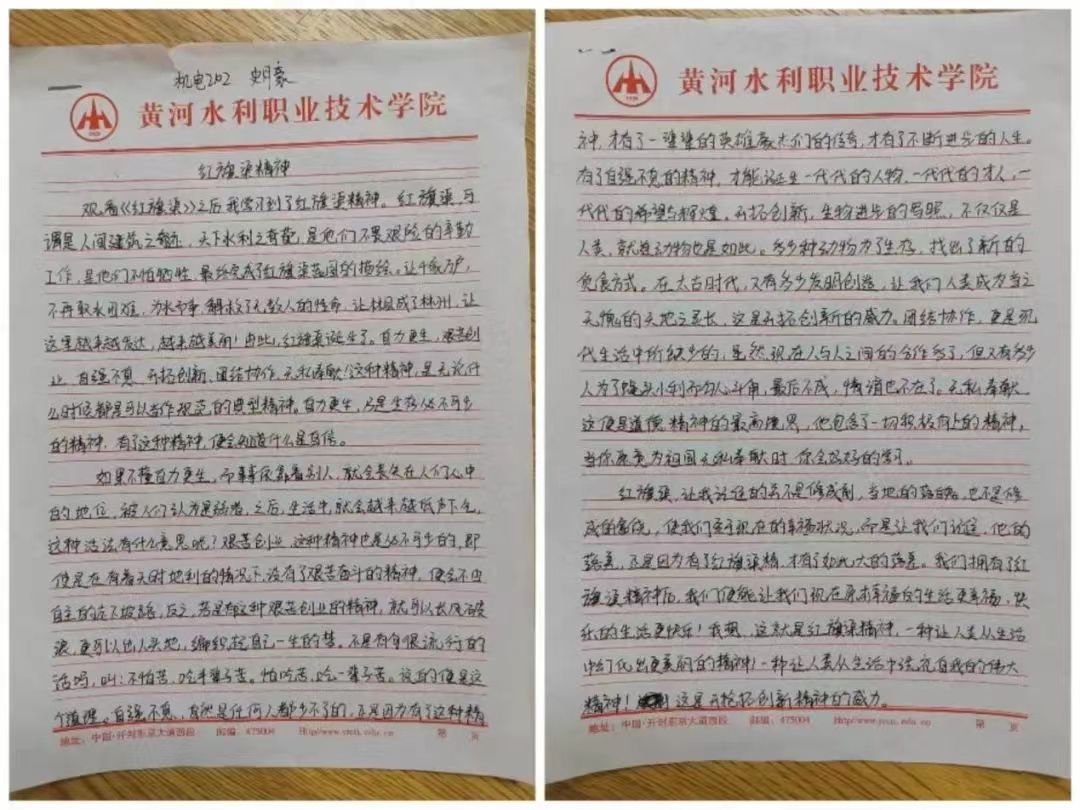 机电202 史明豪
黄河水利职业技术学院
红旗渠精神
观看《红旗渠》之后我学习到了红旗渠精神。红旗渠,可
谓是人间建筑之,天下水利之奇葩,是他们不畏艰险的辛勤
工作,是他们不怕牺牲,最终完成了红旗渠蓝图的描绘。让千家万户,
不再取水困难,为水而争,解救了无数人的性命,让林县成了林州,让
这里越来越发达,越来越美丽!由此,红旗渠诞生了。自力更生,艰苦创
业、自强不息、开拓创新、团结协作、无私奉献!这种精神,是无论什
么时候都是可以当作规范的典型精神。自力更生,乃是生存必不可少
的精神,有了这种精神,便会知道什么是自信。
如果不懂自力更生,而事事依靠着别人,就会丧失在人们心中
的地位,被人们认为是弱者,之后,生活中,就会越来越低声下气,
这种活法,有什么意思呢?艰苦创业,这种精神也是必不可少的,即
便是在有着天时地利的情况下,没有了艰苦奋斗的精神,便会不由
自主的往下坡路,反之,若是有这种艰苦创业的精神,就可以长风破
浪,更可以出人头地,编织起自己一生的梦。不是有句很流行的
话吗,叫:不怕苦,吃半辈子苦。怕吃苦,吃一辈子苦。说的便是这
个道理。自强不息,自然是任何人都少不了的,正是因为有了这种精
地址:中国·开封东京大道西段 邮编:475004 Http//www.yrcti.edu.cn 第 页
黄河水利职业技术学院
神,才有了一辈辈的英雄豪杰们的传奇,才有了不断进步的人生。
有了自强不息的精神,才能诞生一代代的人物,一代代的才人,一
代代的希望与辉煌。开拓创新,生物进步的写照,不仅仅是
人类,就连动物也是如此。多少种动物为了生存,找出了新的
觅食方式。在太古时代,又有多少发明创造,让我们人类成为当之
无愧的天地之灵长,这是开拓创新的威力。团结协作,更是现
代生活中所缺少的,虽然,现在人与人之间的合作多了,但又有多少
人为了蝇头小利而勾心斗角,最后不成,情谊也不在了。无私奉献,
这便是道德精神的最高境界,他包含了一切积极向上的精神,
当你愿意为祖国无私奉献时,你会好好的学习。
红旗渠,让我记住的并不是修成前,当地的落魄,也不是修
成的富饶,使我们至于现在的幸福状况,而是让我们记住,他的
落差,正是因为有了红旗渠精,才有了如此大的落差。我们拥有了红
旗渠精神后,我们便能让我们现在原本幸福的生活更幸福,快
乐的生活更快乐!我想,这就是红旗渠精神,一种让人类从生活
中幻化出更美丽的精神!一种让人类从生活中自我的伟大
精神!这是开拓创新精神的威力。
地址:中国·开封东京大道西段 邮编:475004 Http//www.yrcti.edu.cn 第 页